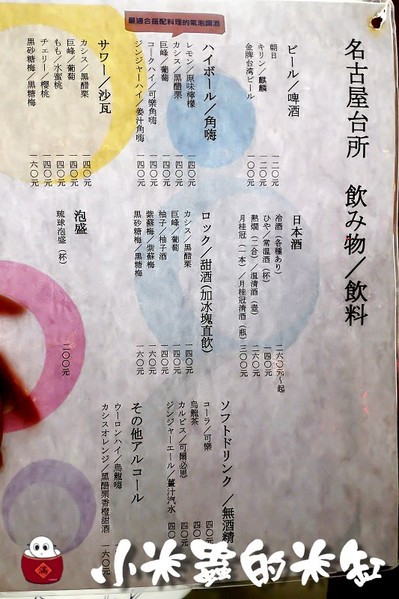 名古屋台所　飲み物／飲料
ビール／啤酒
朝日　一二〇元
キリン／麒麟　一二〇元
金牌台湾ビール　一〇〇元
最適合搭配料理的氣泡調酒
ハイボール／角嗨
レモン／原味檸檬　一四〇元
カシス／黒醋栗　一四〇元
巨峰／葡萄　一四〇元
コークハイ／可樂角嗨　一四〇元
ジンジャーハイ／姜汁角嗨　一四〇元
サワー／沙瓦
カシス／黒醋栗　一四〇元
巨峰／葡萄　一四〇元
もも／水蜜桃　一四〇元
チェリー／櫻桃　一四〇元
黒砂糖梅／黒糖梅　一六〇元
日本酒
冷酒（各種あり）　二六〇元～起
ひや／常温酒（杯）　一四〇元
熱燗（二合）／温清酒（壹）　二六〇元
月桂冠（一本）／月桂冠清酒（瓶）　三〇〇元
ロック／甜酒（加冰塊直飲）
カシス／黒醋栗　一四〇元
巨峰／葡萄　一四〇元
柚子／柚子酒　一四〇元
紫蘇梅／紫蘇梅　一六〇元
黒砂糖梅／黒糖梅　一六〇元
泡盛
琉球泡盛（杯）　二〇〇元
ソフトドリンク　／無酒精
コーラ／可樂　四〇元
烏龍茶　四〇元
カルピス／可爾必思　四〇元
ジンジャーエール／薑汁汽水　四〇
その他アルコール
ウーロンハイ／烏龍嗨
カシスオレンジ／黒醋栗香橙甜酒　一六〇元
小米蟲的米缸